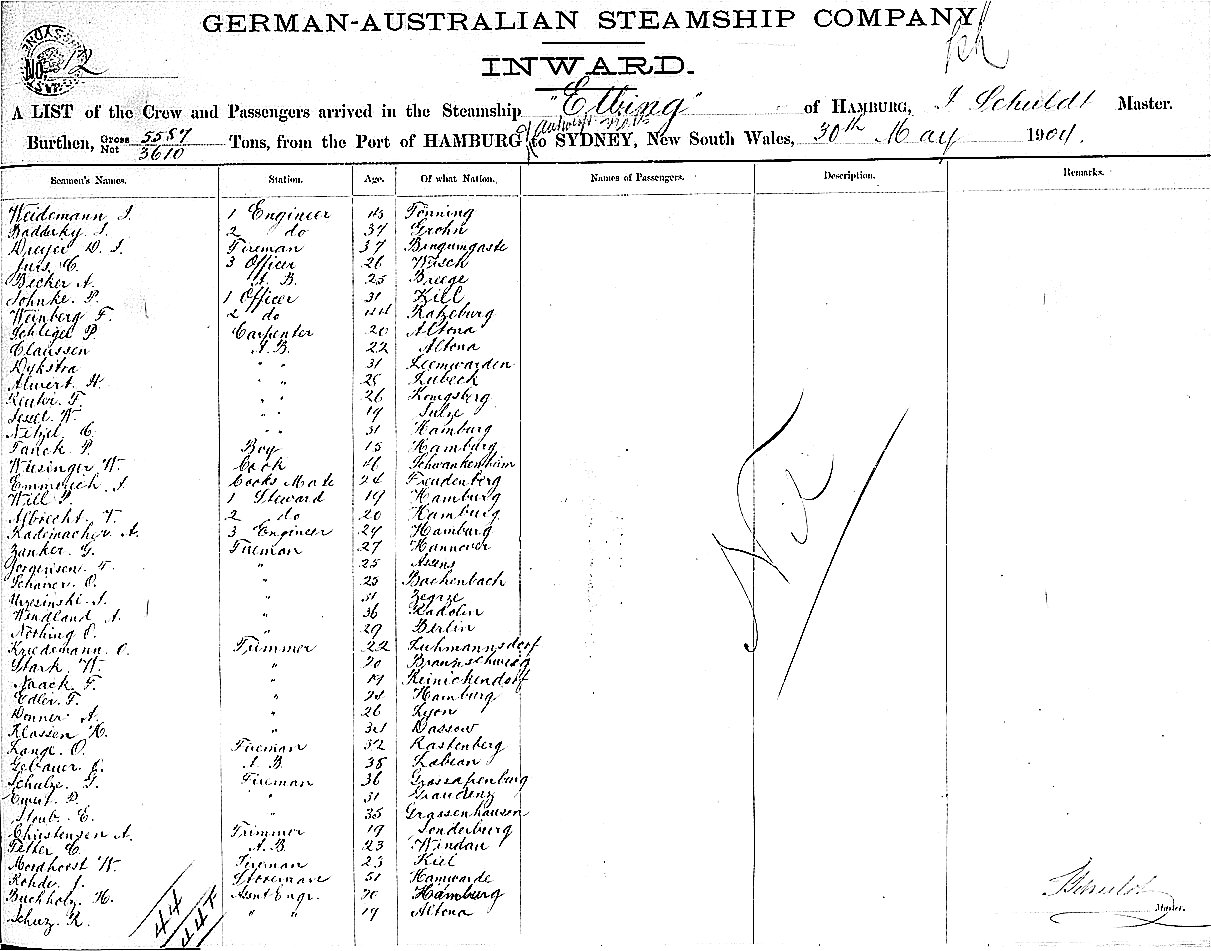 GERMAN-AUSTRALIAN STEAMSHIP COMPANY
No. 12
INWARD.
A LIST of the Crew and Passengers arrived in the Steamship "Elbing" of HAMBURG, J Schuldt Master.
Burthen, Gross 5587 Net 3610 Tons, from the Port of HAMBURG to SYDNEY, New South Wales, 30th May 1904.
Seamen's Names. Station. Age. Of what Nation. Names of Passengers. Description. Remarks.
Weidemann J. 1 Engineer Tönning
2 do 34 Grohn
Dreyer D. J. Fireman 37 Bingumgaste
Jurs. C. 3 Officer 26 Wisch
Becker A. A. B. 25 Breege
Johnke. P. 1 Officer 31 Kiel
Weinberg F. 2 do 44 Ratzeburg
Schlegel P. Carpenter 20 Altona
Claussen A. B. 22 Altona
Dykstra " " 31 Leemwarden
Alwert. H. " " 25 Lubeck
Reuter. F. " " 26 Konigsberg
W. " " 19 Sulze
Nitzel. C. " " 31 Hamburg
Tanck. P. Boy 15 Hamburg
Wiesinger W. Cook Schwankenheim
Emmerich. J. Cooks Mate 24 Freudenberg
Will P. 1 Steward 19 Hamburg
Albrecht. W. 2 do 20 Hamburg
Rademacher. A. 3 Engineer 24 Hamburg
Zanker. G. Fireman 27 Hannover
Jorgensen. F. " 25 Assens
Scharer. O. " 25 Bachenbach
" 31 Zegrze
Wendland A. " 36 Radolin
Nothing O. " 29 Berlin
Kriedemann. O. Trimmer 22 Luhmannsdorf
Stark. W. " 20 Braunschweig
Naack. F. " 19 Reinickendorf
Edler. F. " 24 Hamburg
Donner. A. " 26 Lyon
Klassen H. " 34 Dassow
Lange. O. Fireman 32 Rastenberg
Gebauer. C. A. B. 38 Labian
Schulze. G. Fireman 36 Grossapenburg
Ewert. P. " 31 Graudenz
Staub. E. " 35 Grassenhausen
Christensen A. Trimmer 19 Sonderburg
Petter C. A. B. 23 Windau
Nordhorst W. Fireman 23 Kiel
Rohde. J. Storeman 51 Hamwarde
Buchholz. H. Assnt Engr. 20 Hamburg
Schuz. R. " " 19 Altona
44
44+
Nix
Schuldt
Master.